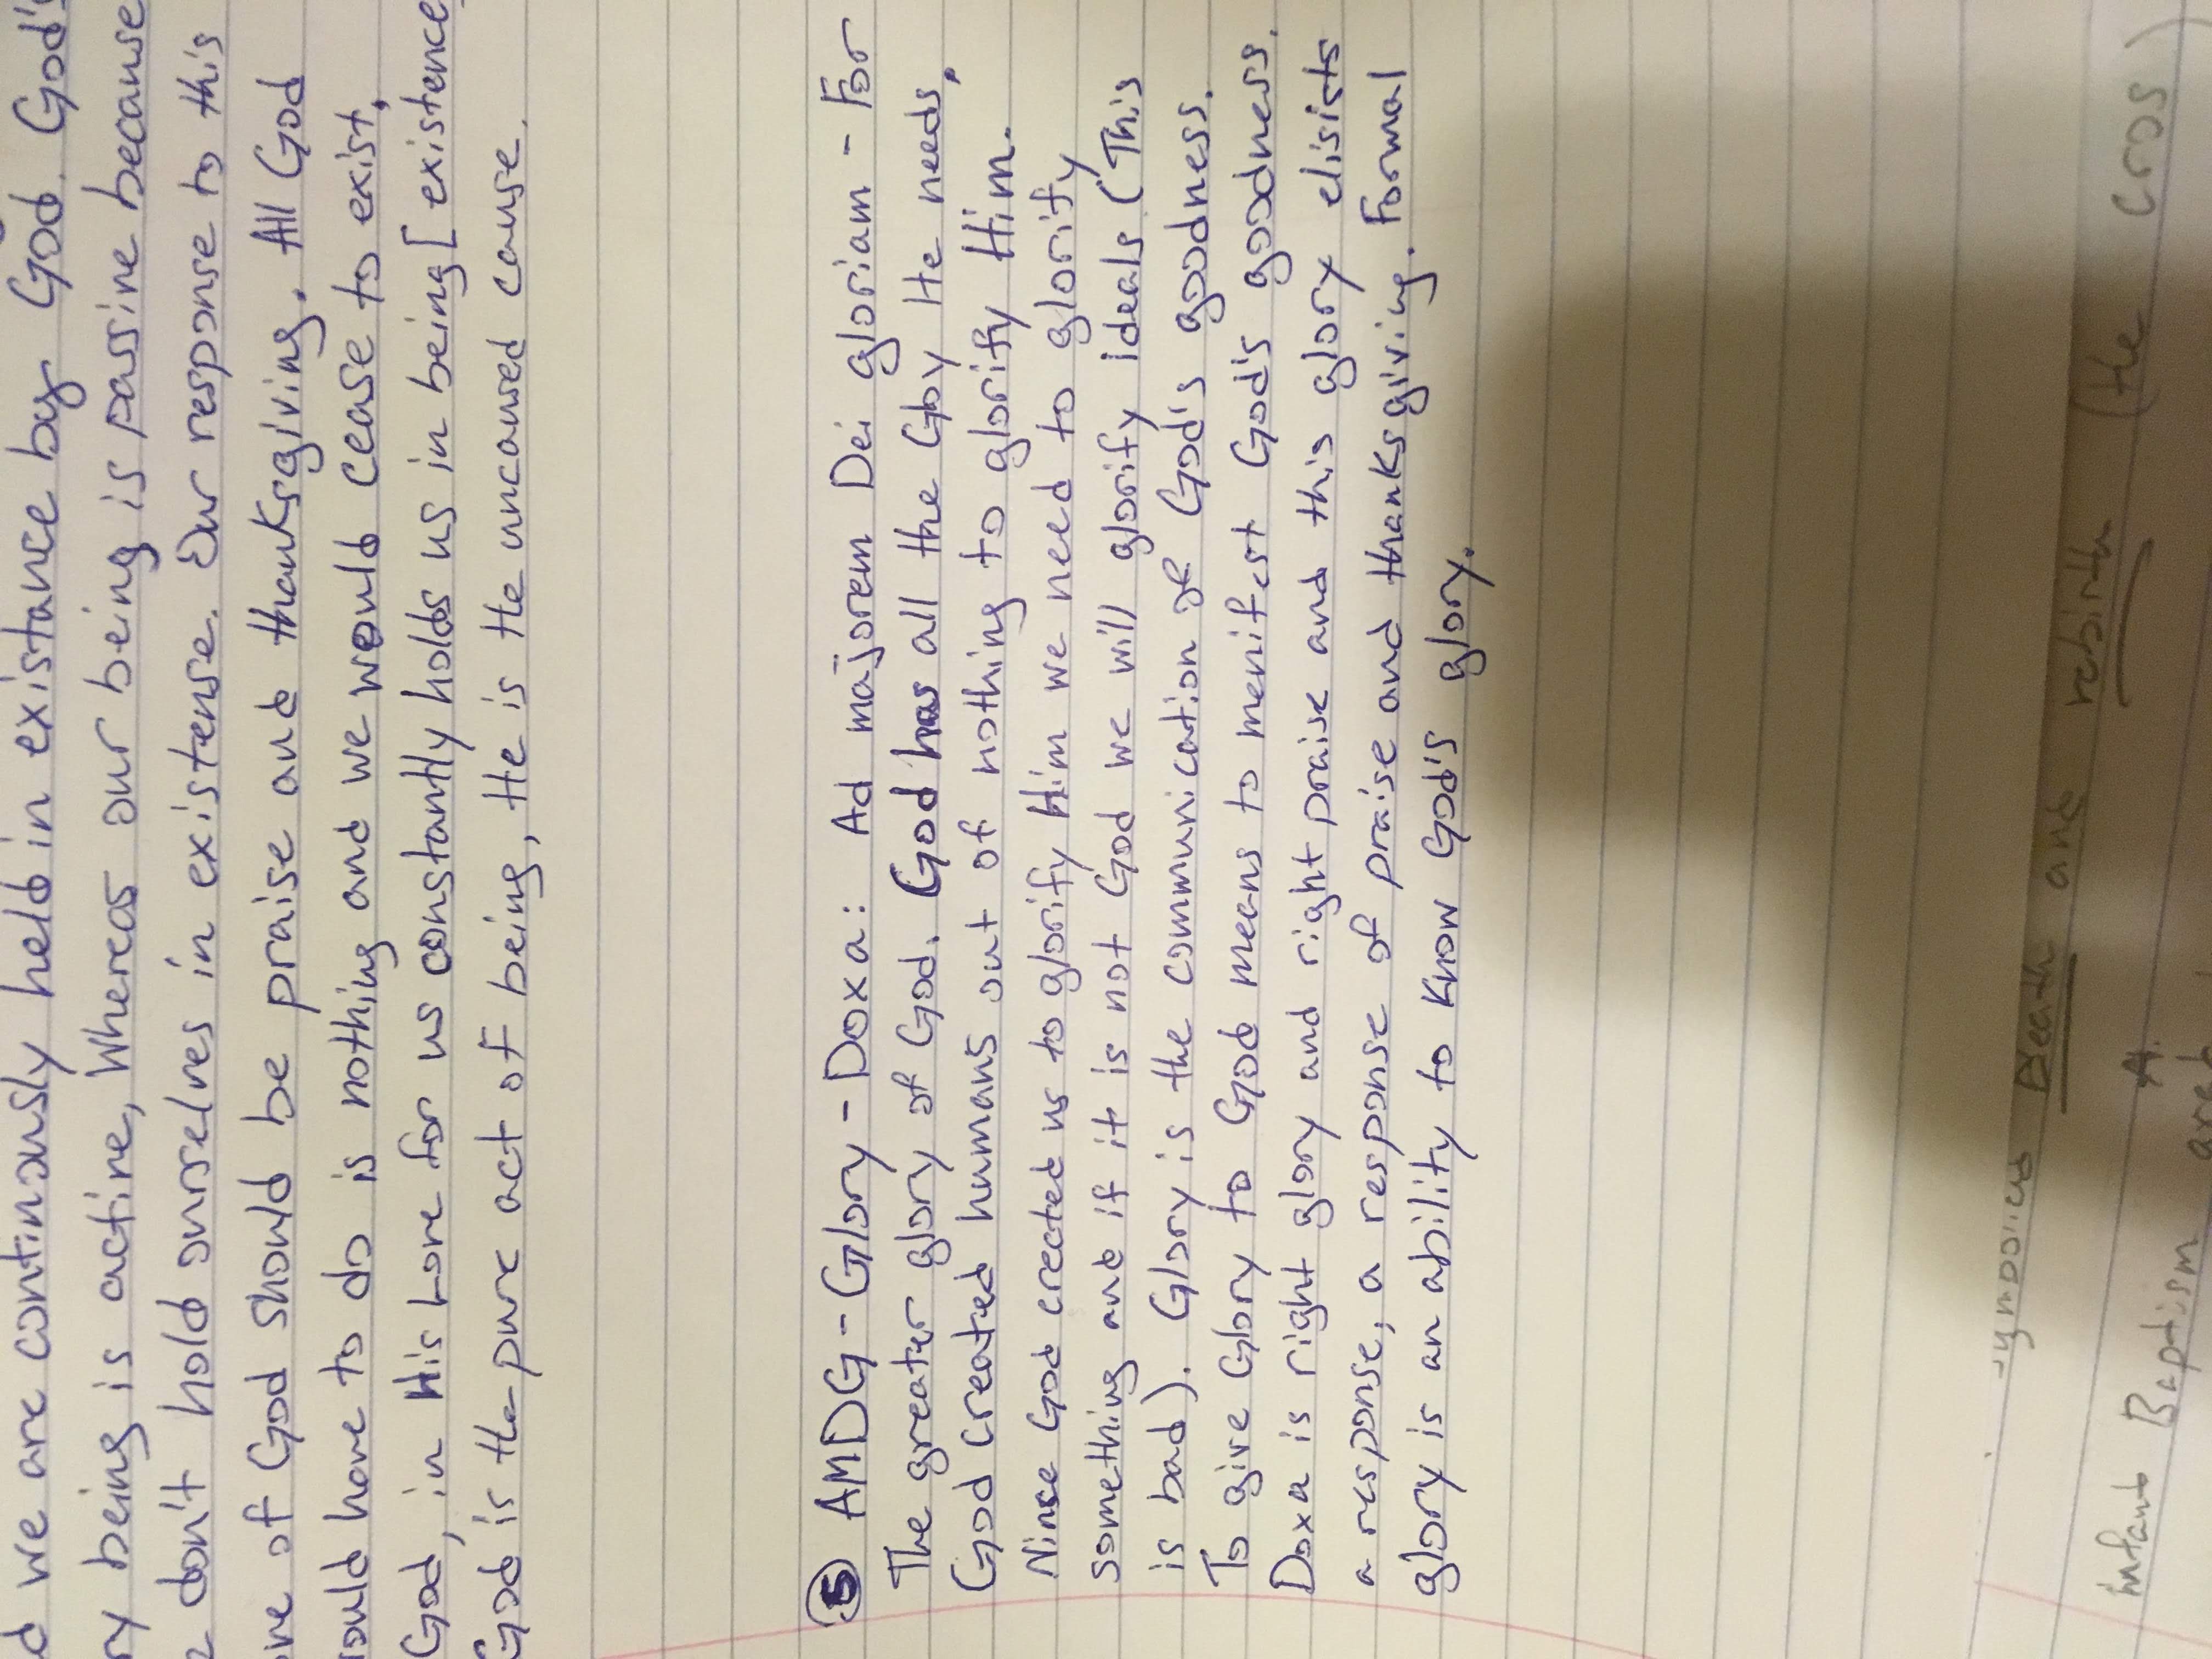 d we are continuously held in existance by God. God's
ry being is active, Whereas our being is passive because
don't hold ourselves in existense. Our response to this
ove of God should be praise and thanksgiving. All God
would have to do is nothing and we would cease to exist.
God, in His Love for us constantly holds us in being [existence
God is the pure act of being, He is the uncaused cause.
5 AMDG - Glory - Doxa: Ad majorem Dei gloriam - For
The greater glory of God. God has all the Gloy He needs,
God created humans out of nothing to glorify Him.
Nince God created us to glorify Him we need to glorify
something and if it is not God we will glorify ideals (This
is bad). Glory is the communication of God's goodness.
To give Glory to God means to menifest God's goodness.
Doxa is right glory and right praise and this glory elisists
a response, a response of praise and thanksgiving. Formal
glory is an ability to know God's glory.
Death and rebirth (the cros)
infant Baptism